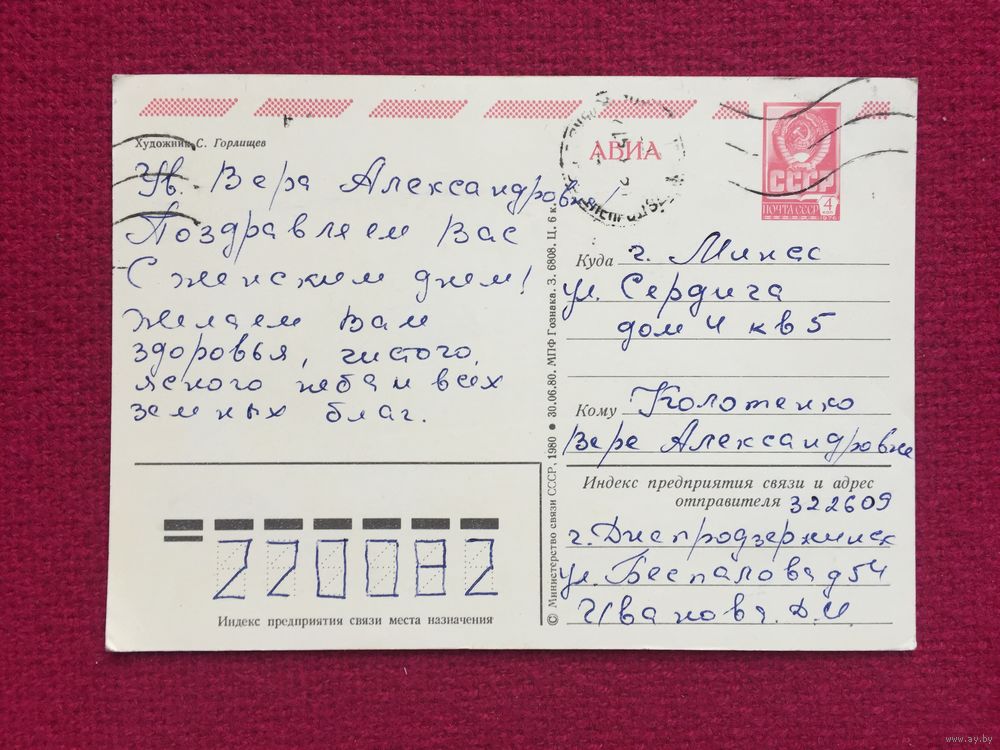 Художник С. Горлищев
Ув. Вера Александровна!
Поздравляем Вас
С женским днем!
Желаем Вам
здоровья, чистого,
ясного неба и всех
земных благ.
220082
Индекс предприятия связи места назначения
© Министерство связи СССР, 1980 ● 30.06.80. МПФ Гознака. З. 6808. Ц. 6 к.
АВИА
СССР
ПОЧТА СССР
4 КОП
1976
Куда г. Минск
ул. Сердича
дом 4 кв 5
Кому Колотенко
Вере Александровне
Индекс предприятия связи и адрес
отправителя 322609
г. Днепродзержинск
ул. Беспалова д 54
Иванова. Д. И.
www.ay.by